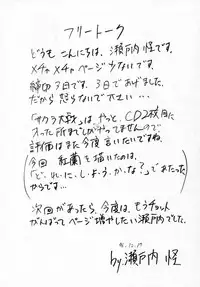 フリートーク
どうも こんにちは、瀬戸内 怪です。
メチャメチャページ少ないです。
締切3日です。3日であげました。
だから 怒らないで下さい…
「サクラ大戦」は、やっと、CD2枚目に
入った所までしかやってませんので
評価はまた今度 言いたいですね。
今回 紅蘭を描いたのは、
「ど・れ・に・し・よ・う・か・な？」であたった
からです…
次回があったら、今度は、もうチョット
がんばってページ増やしたい瀬戸内でした。
by.瀬戸内 怪